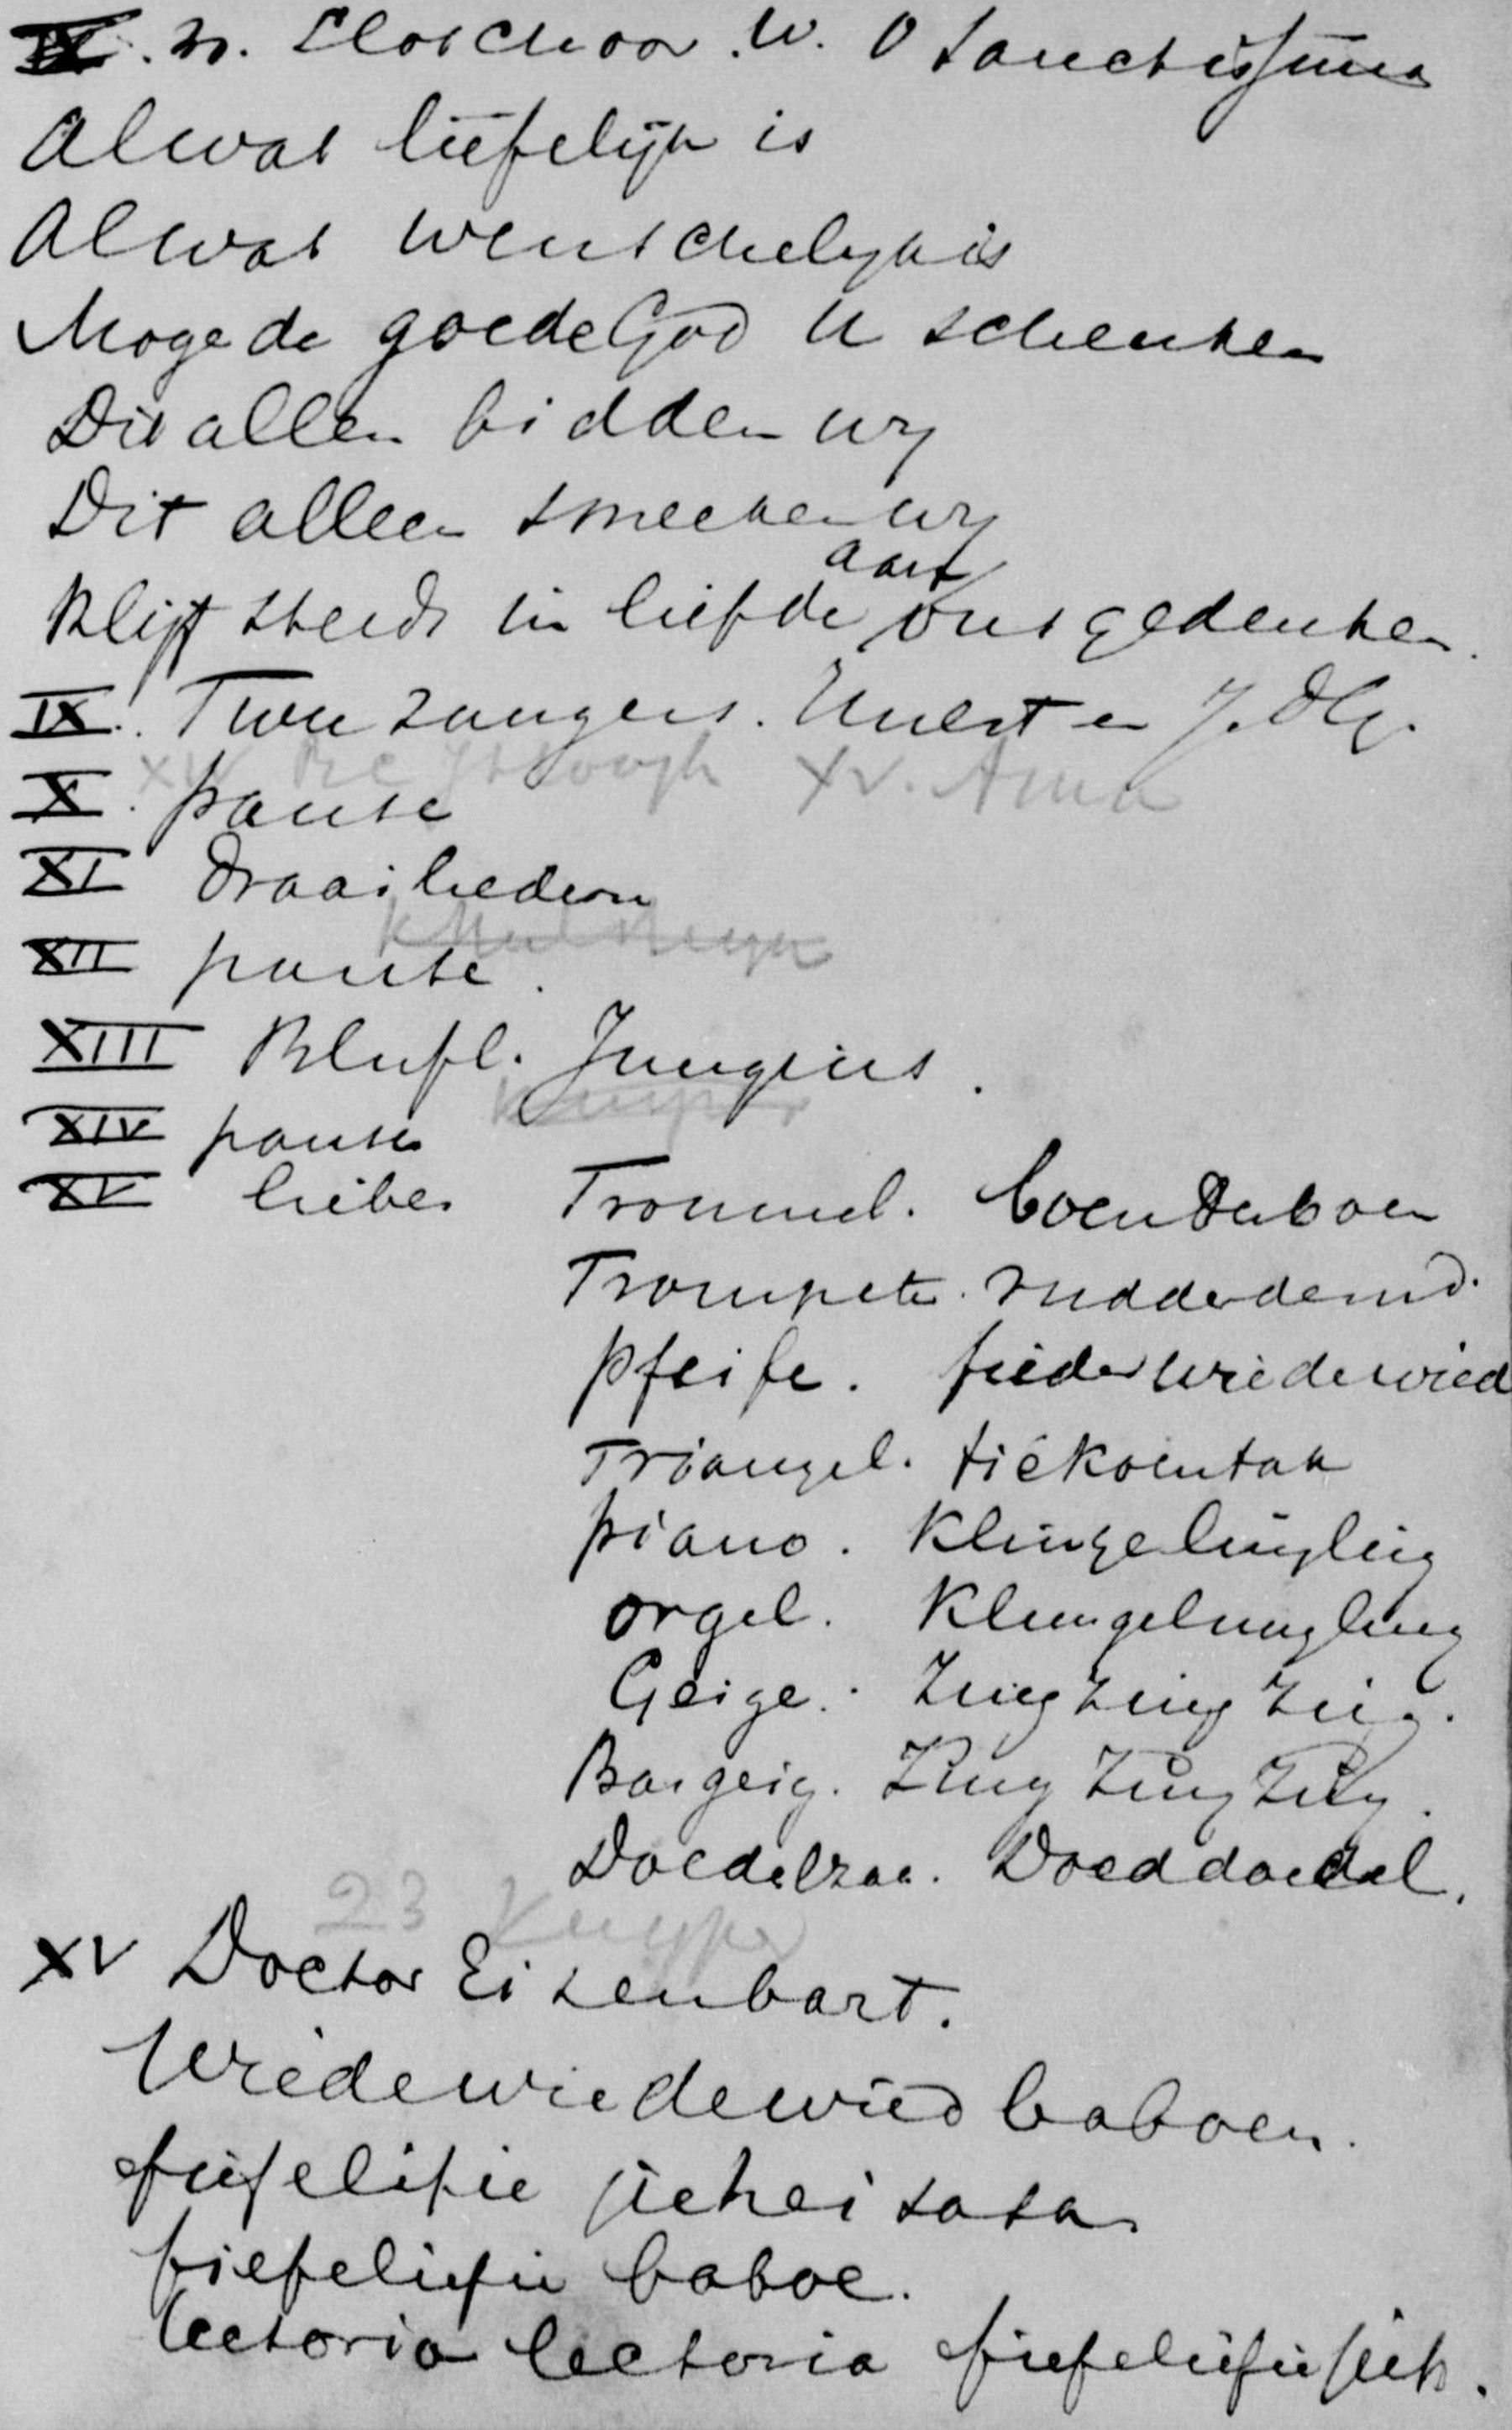 IX. n. Slotchoor. W. O Sanctissima
Alwat liefelijk is
Alwat wenschelijk is
Moge de goede God U schenken
Dit alleen bidden wij
Dit alleen smeeken wij
aan
Blijft steeds in liefde ons gedenken.
IX. Twee zangers. en J.
XV. Anna
X. pause
XI Draailiederen
XII pause.
XIII Blufl. Jungius.
Kuyper
XIV pause
XV lieber Trommel. boem daboem
Trompete. rudderdemd.
Pfeife. fiederwiedewied
Triangel. tiekoentak
piano. Klingelingling
orgel. Klungelunglung
Geige. Zing zing zing.
Basgeig. Zung zung zung.
Doedelzak. Doeddoedel.
23 Kuyper
XV Doctor Eisenbart.
Wiedewiedewied baboem.
fiefeliefie juchei sasa
fiefeliefie baboe.
lectoria lectoria fiefeliefie juch.